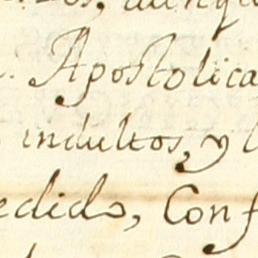 Apostolica
indultos, y
edido, Conf